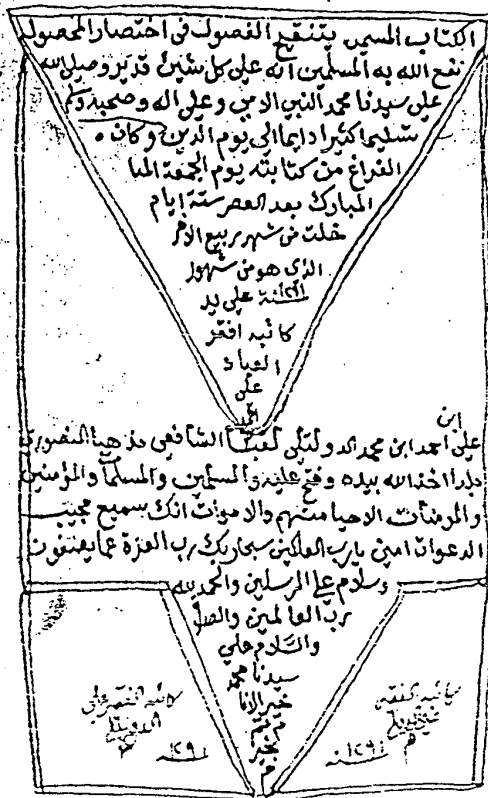 الكتاب المسمى بتنقيح الفصول في اختصار المحصول
نفع الله به المسلمين انه على كل شيئ قدير وصلى الله
على سيدنا محمد النبي الامي وعلى اله وصحبه وسلم
تسليما كثيرا دايما الى يوم الدين وكان
الفراغ من كتابته يوم الجمعة المبا
المبارك بعد العصر ستة ايام
خلت من شهر ربيع الاخر
الذي هو من شهور
سنة ١٢٩١ على يد
كاتبه افقر
العباد
على
ابن
على احمد ابن محمد الدوليلى لقبا الشافعى مذهبا المنصوري
بلدا اخذ الله بيده وفتح عليه والمسلمين والمسلمات والمؤمنين
والمومنات الاحيا منهم والاموات انك سميع مجيب
الدعوات امين يارب العالمين سبحان ربك رب العزة عما يصفون
وسلام على المرسلين والحمد لله
رب العالمين والصلا
والسلام على
سيدنا محمد
خير الانا
م تم
بخير
م
كاتبه الفقير على
م
سنة ١٢٩١
كاتبه الفقير
م
سنة ١٢٩١